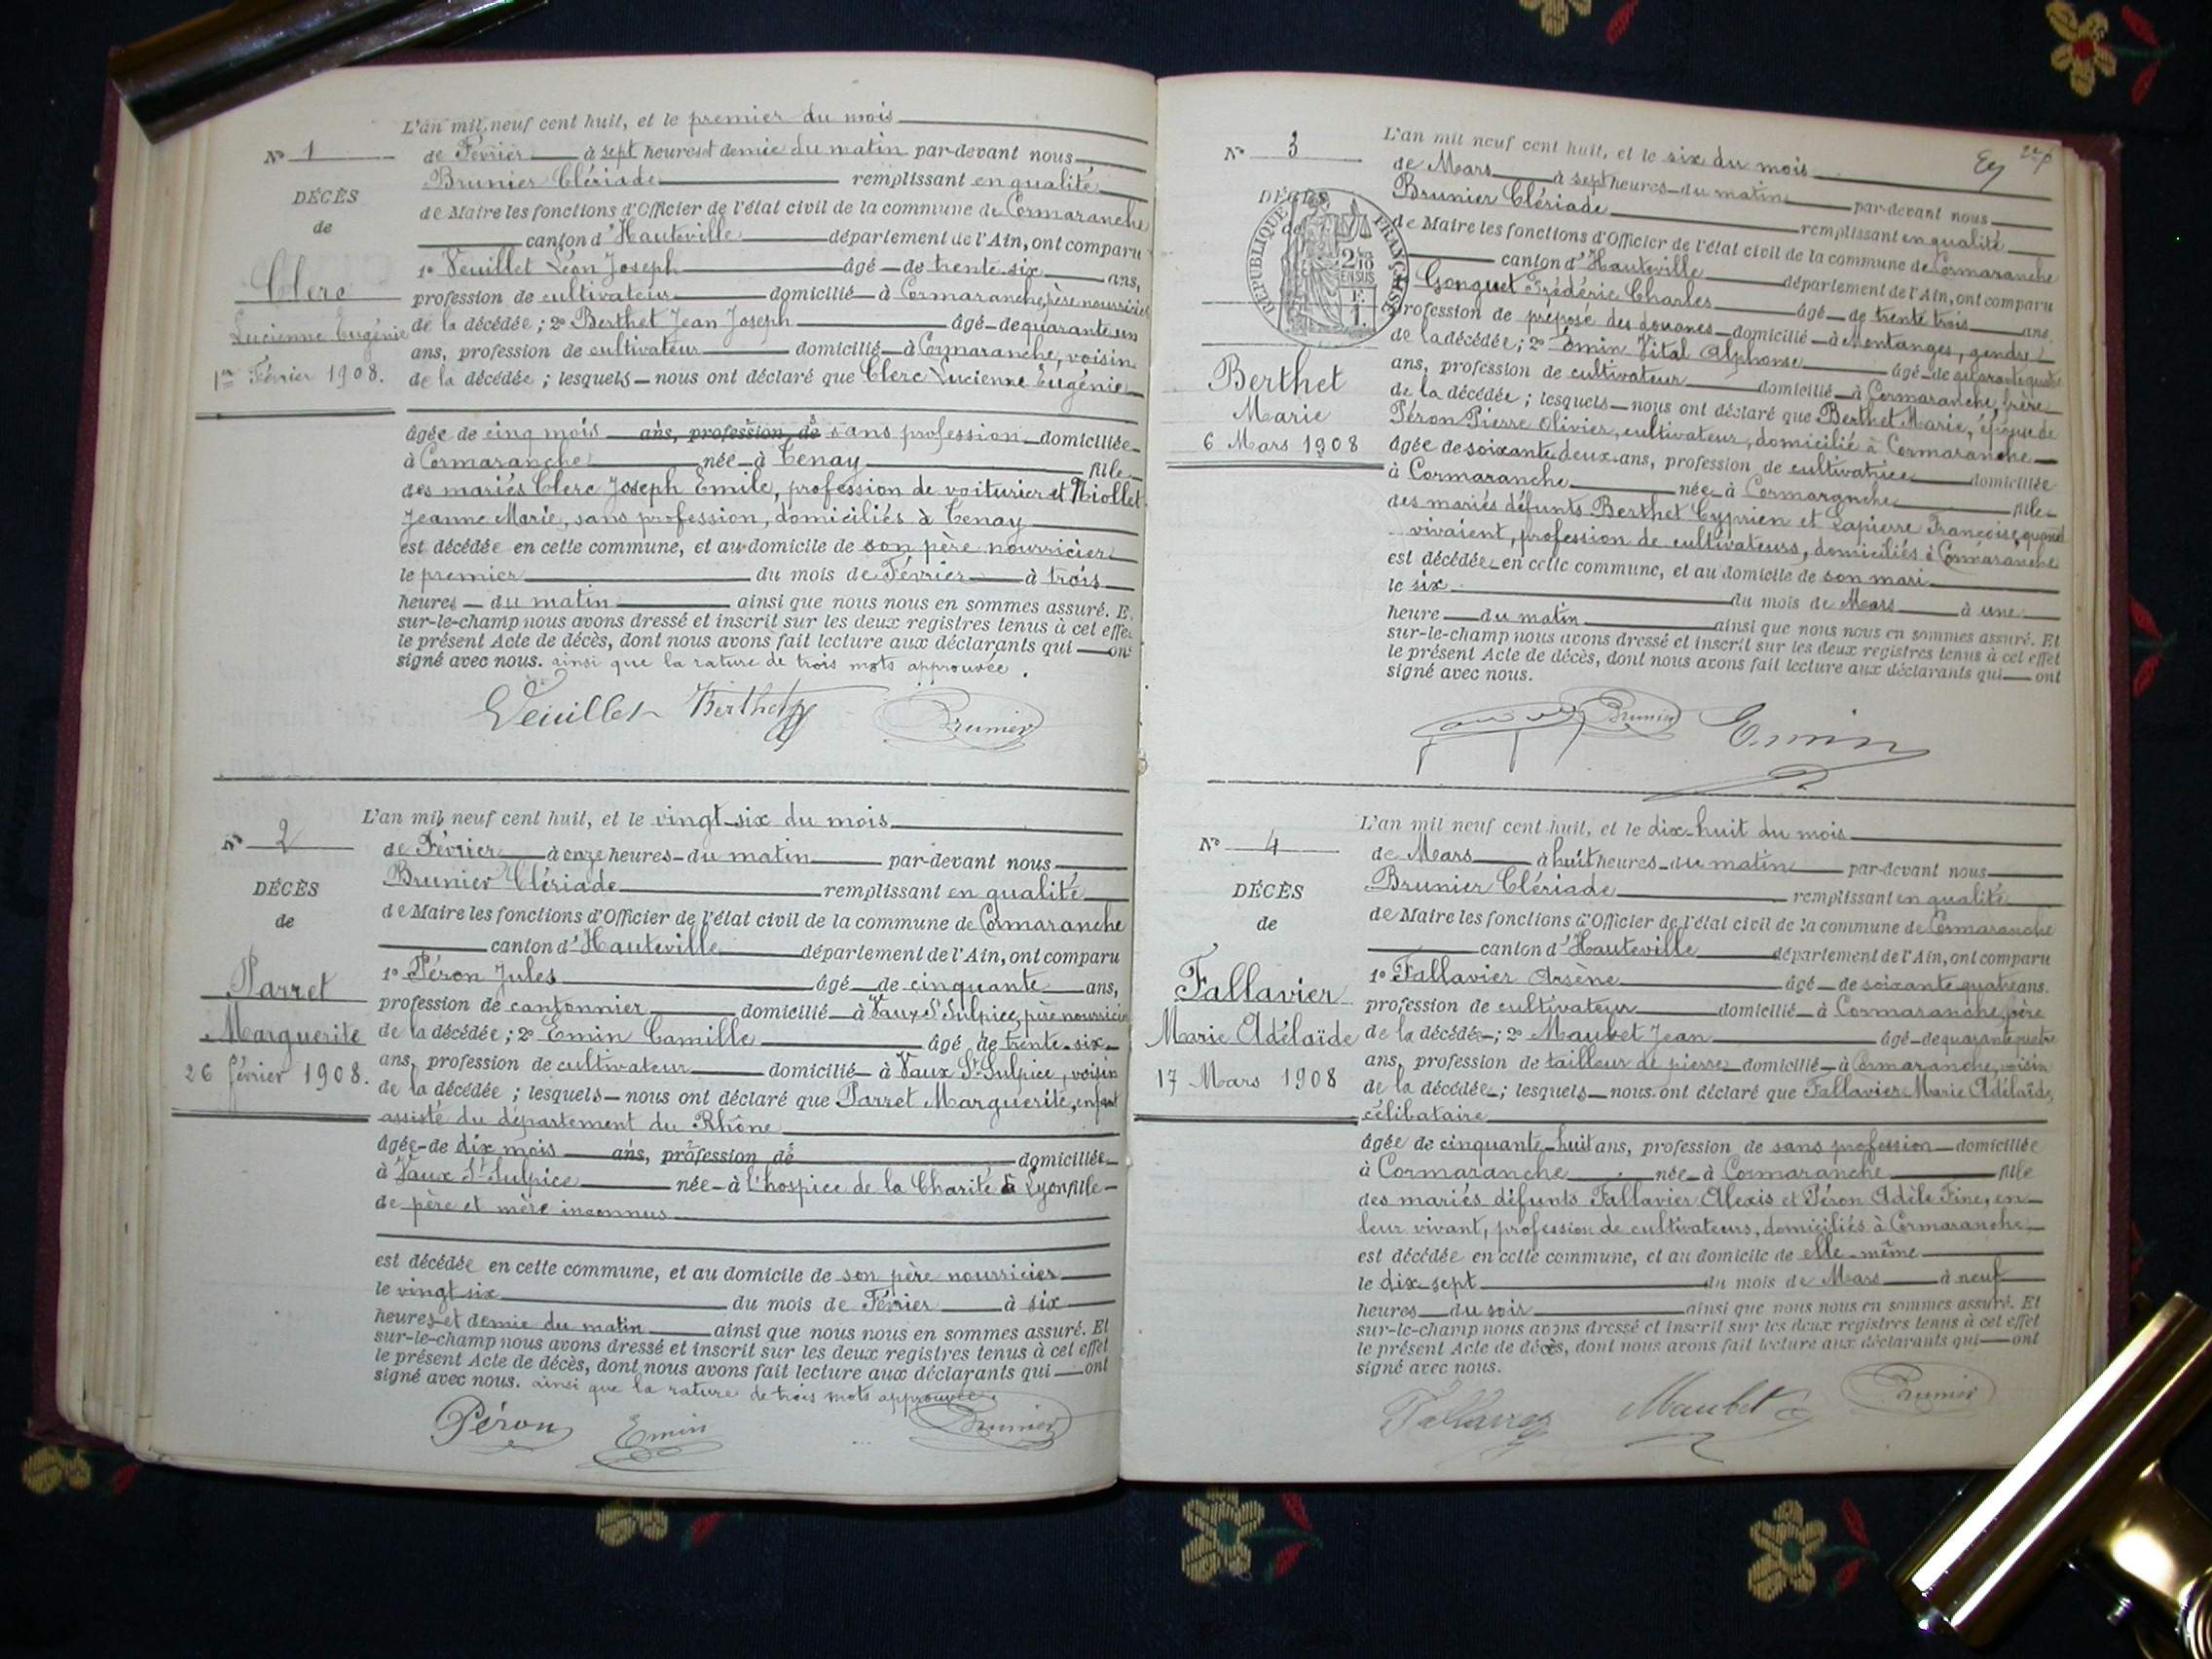 L'an mil neuf cent huit, et le premier du mois
N° 1
de Février à sept heures et demie du matin par-devant nous
Brunier Clériade remplissant en qualité
DÉCÈS
de Maire les fonctions d'Officier de l'état civil de la commune de Cormaranche
de
canton d'Hauteville département de l'Ain, ont comparu
1° Veuillet Léon Joseph âgé de trente-six ans,
Clerc
profession de cultivateur domicilié à Cormaranche, père nourricier
Lucienne Eugénie
de la décédée; 2° Berthet Jean Joseph âgé de quarante un
ans, profession de cultivateur domicilié à Cormaranche, voisin
1er Février 1908.
de la décédée; lesquels nous ont déclaré que Clerc Lucienne Eugénie
âgée de cinq mois ans, profession de sans profession domiciliée
à Cormaranche née à Tenay fille
des mariés Clerc Joseph Emile, profession de voiturier et Niollet
Jeanne Marie, sans profession, domiciliés à Tenay
est décédée en cette commune, et au domicile de son père nourricier
le premier du mois de Février à trois
heures du matin ainsi que nous nous en sommes assuré. E
sur-le-champ nous avons dressé et inscrit sur les deux registres tenus à cet effe
le présent Acte de décès, dont nous avons fait lecture aux déclarants qui ont
signé avec nous. ainsi que la rature de trois mots approuvée.
Veuillet Berthet Brunier
L'an mil neuf cent huit, et le vingt-six du mois
N° 2
de Février à onze heures du matin par-devant nous
Brunier Clériade remplissant en qualité
DÉCÈS
de Maire les fonctions d'Officier de l'état civil de la commune de Cormaranche
de
canton d'Hauteville département de l'Ain, ont comparu
1° Péron Jules âgé de cinquante ans,
Parret
profession de cantonnier domicilié à Vaux St Sulpice, père nourricier
Marguerite
de la décédée; 2° Emin Camille âgé de trente-six
ans, profession de cultivateur domicilié à Vaux St Sulpice, voisin
26 février 1908.
de la décédée; lesquels nous ont déclaré que Parret Marguerite, enfant
assisté du département du Rhône
âgée de dix mois ans, profession de domiciliée
à Vaux St Sulpice née à l'hospice de la Charité à Lyon fille
de père et mère inconnus
est décédée en cette commune, et au domicile de son père nourricier
le vingt six du mois de Février à six
heures et demie du matin ainsi que nous nous en sommes assuré. Et
sur-le-champ nous avons dressé et inscrit sur les deux registres tenus à cet effet
le présent Acte de décès, dont nous avons fait lecture aux déclarants qui ont
signé avec nous. ainsi que la rature de trois mots approuvée.
Péron Emin Brunier
L'an mil neuf cent huit, et le six du mois
N° 3
de Mars à sept heures du matin par-devant nous
Brunier Clériade remplissant en qualité
DÉCÈS
de
RÉPUBLIQUE FRANÇAISE
2/10 EN SUS
de Maire les fonctions d'Officier de l'état civil de la commune de Cormaranche
canton d'Hauteville département de l'Ain, ont comparu
Gonguet Frédéric Charles âgé de trente trois ans
profession de préposé des douanes domicilié à Montanges, gendre
de la décédée; 2° Emin Vital Alphonse âgé de quarante quatre
Berthet
ans, profession de cultivateur domicilié à Cormaranche, frère
Marie
de la décédée; lesquels nous ont déclaré que Berthet Marie, épouse de
Péron Pierre Olivier, cultivateur, domicilié à Cormaranche
6 Mars 1908
âgée de soixante deux ans, profession de cultivatrice domiciliée
à Cormaranche née à Cormaranche fille
des mariés défunts Berthet Cyprien et Lapierre Françoise, quand
vivaient, profession de cultivateurs, domiciliés à Cormaranche
est décédée en cette commune, et au domicile de son mari
le six du mois de Mars à une
heure du matin ainsi que nous nous en sommes assuré. Et
sur-le-champ nous avons dressé et inscrit sur les deux registres tenus à cet effet
le présent Acte de décès, dont nous avons fait lecture aux déclarants qui ont
signé avec nous.
Brunier Emin
L'an mil neuf cent huit, et le dix-huit du mois
N° 4
de Mars à huit heures du matin par-devant nous
Brunier Clériade remplissant en qualité
DÉCÈS
de Maire les fonctions d'Officier de l'état civil de la commune de Cormaranche
de
canton d'Hauteville département de l'Ain, ont comparu
1° Fallavier Arsène âgé de soixante quatre ans.
Fallavier
profession de cultivateur domicilié à Cormaranche, frère
Marie Adélaïde
de la décédée; 2° Maubet Jean âgé de quarante quatre
ans, profession de tailleur de pierres domicilié à Cormaranche, voisin
17 Mars 1908
de la décédée; lesquels nous ont déclaré que Fallavier Marie Adélaïde,
célibataire
âgée de cinquante-huit ans, profession de sans profession domiciliée
à Cormaranche née à Cormaranche fille
des mariés défunts Fallavier Alexis et Péron Adèle Fine, en
leur vivant, profession de cultivateurs, domiciliés à Cormaranche,
est décédée en cette commune, et au domicile de elle-même
le dix-sept du mois de Mars à neuf
heures du soir ainsi que nous nous en sommes assuré. Et
sur-le-champ nous avons dressé et inscrit sur les deux registres tenus à cet effet
le présent Acte de décès, dont nous avons fait lecture aux déclarants qui ont
signé avec nous.
Fallavier Maubet Brunier